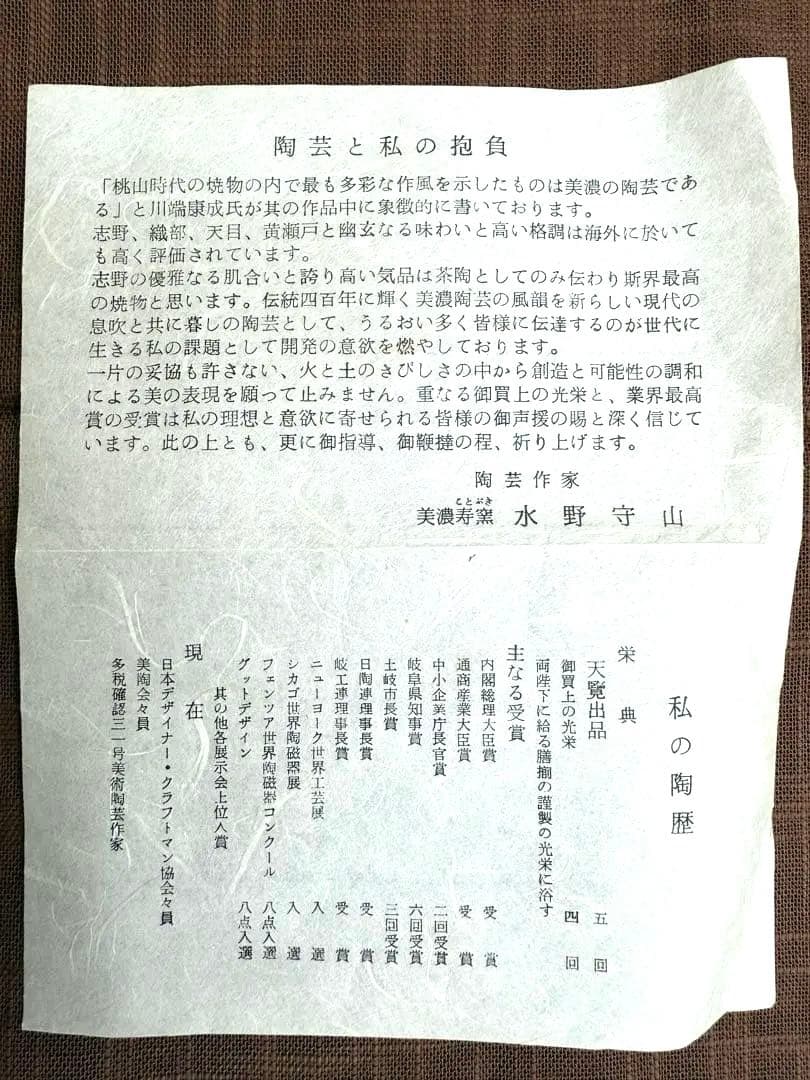 陶芸と私の抱負
「桃山時代の焼物の内で最も多彩な作風を示したものは美濃の陶芸であ
る」と川端康成氏が其の作品中に象徴的に書いております。
志野、織部、天目、黄瀬戸と幽玄なる味わいと高い格調は海外に於いて
も高く評価されています。
志野の優雅なる肌合いと誇り高い気品は茶陶としてのみ伝わり斯界最高
の焼物と思います。伝統四百年に輝く美濃陶芸の風韻を新らしい現代の
息吹と共に暮しの陶芸として、うるおい多く皆様に伝達するのが世代に
生きる私の課題として開発の意欲を燃やしております。
一片の妥協も許さない、火と土のきびしさの中から創造と可能性の調和
による美の表現を願って止みません。重なる御買上の光栄と、業界最高
賞の受賞は私の理想と意欲に寄せられる皆様の御声援の賜と深く信じて
います。此の上とも、更に御指導、御鞭撻の程、祈り上げます。
陶芸作家
ことぶき
美濃寿窯 水野守山
私の陶歴
栄典
天覧出品 五回
御買上の光栄 四回
両陛下に給る膳揃の謹製の光栄に浴す
主なる受賞
内閣総理大臣賞 受賞
通商産業大臣賞 受賞
中小企業庁長官賞 二回受賞
岐阜県知事賞 六回受賞
土岐市長賞 三回受賞
日陶連理事長賞 受賞
岐工連理事長賞 受賞
ニューヨーク世界工芸展 入選
シカゴ世界陶磁器展 入選
フェンツア世界陶磁器コンクール 八点入選
グットデザイン 八点入選
其の他各展示会上位入賞
現在
日本デザイナー・クラフトマン協会々員
美陶会々員
多税確認三一号美術陶芸作家